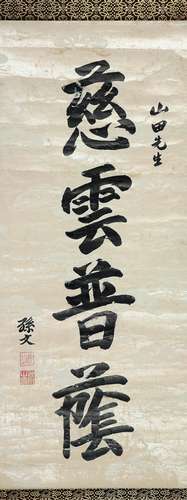 山田先生
慈雲普蔭
孫文